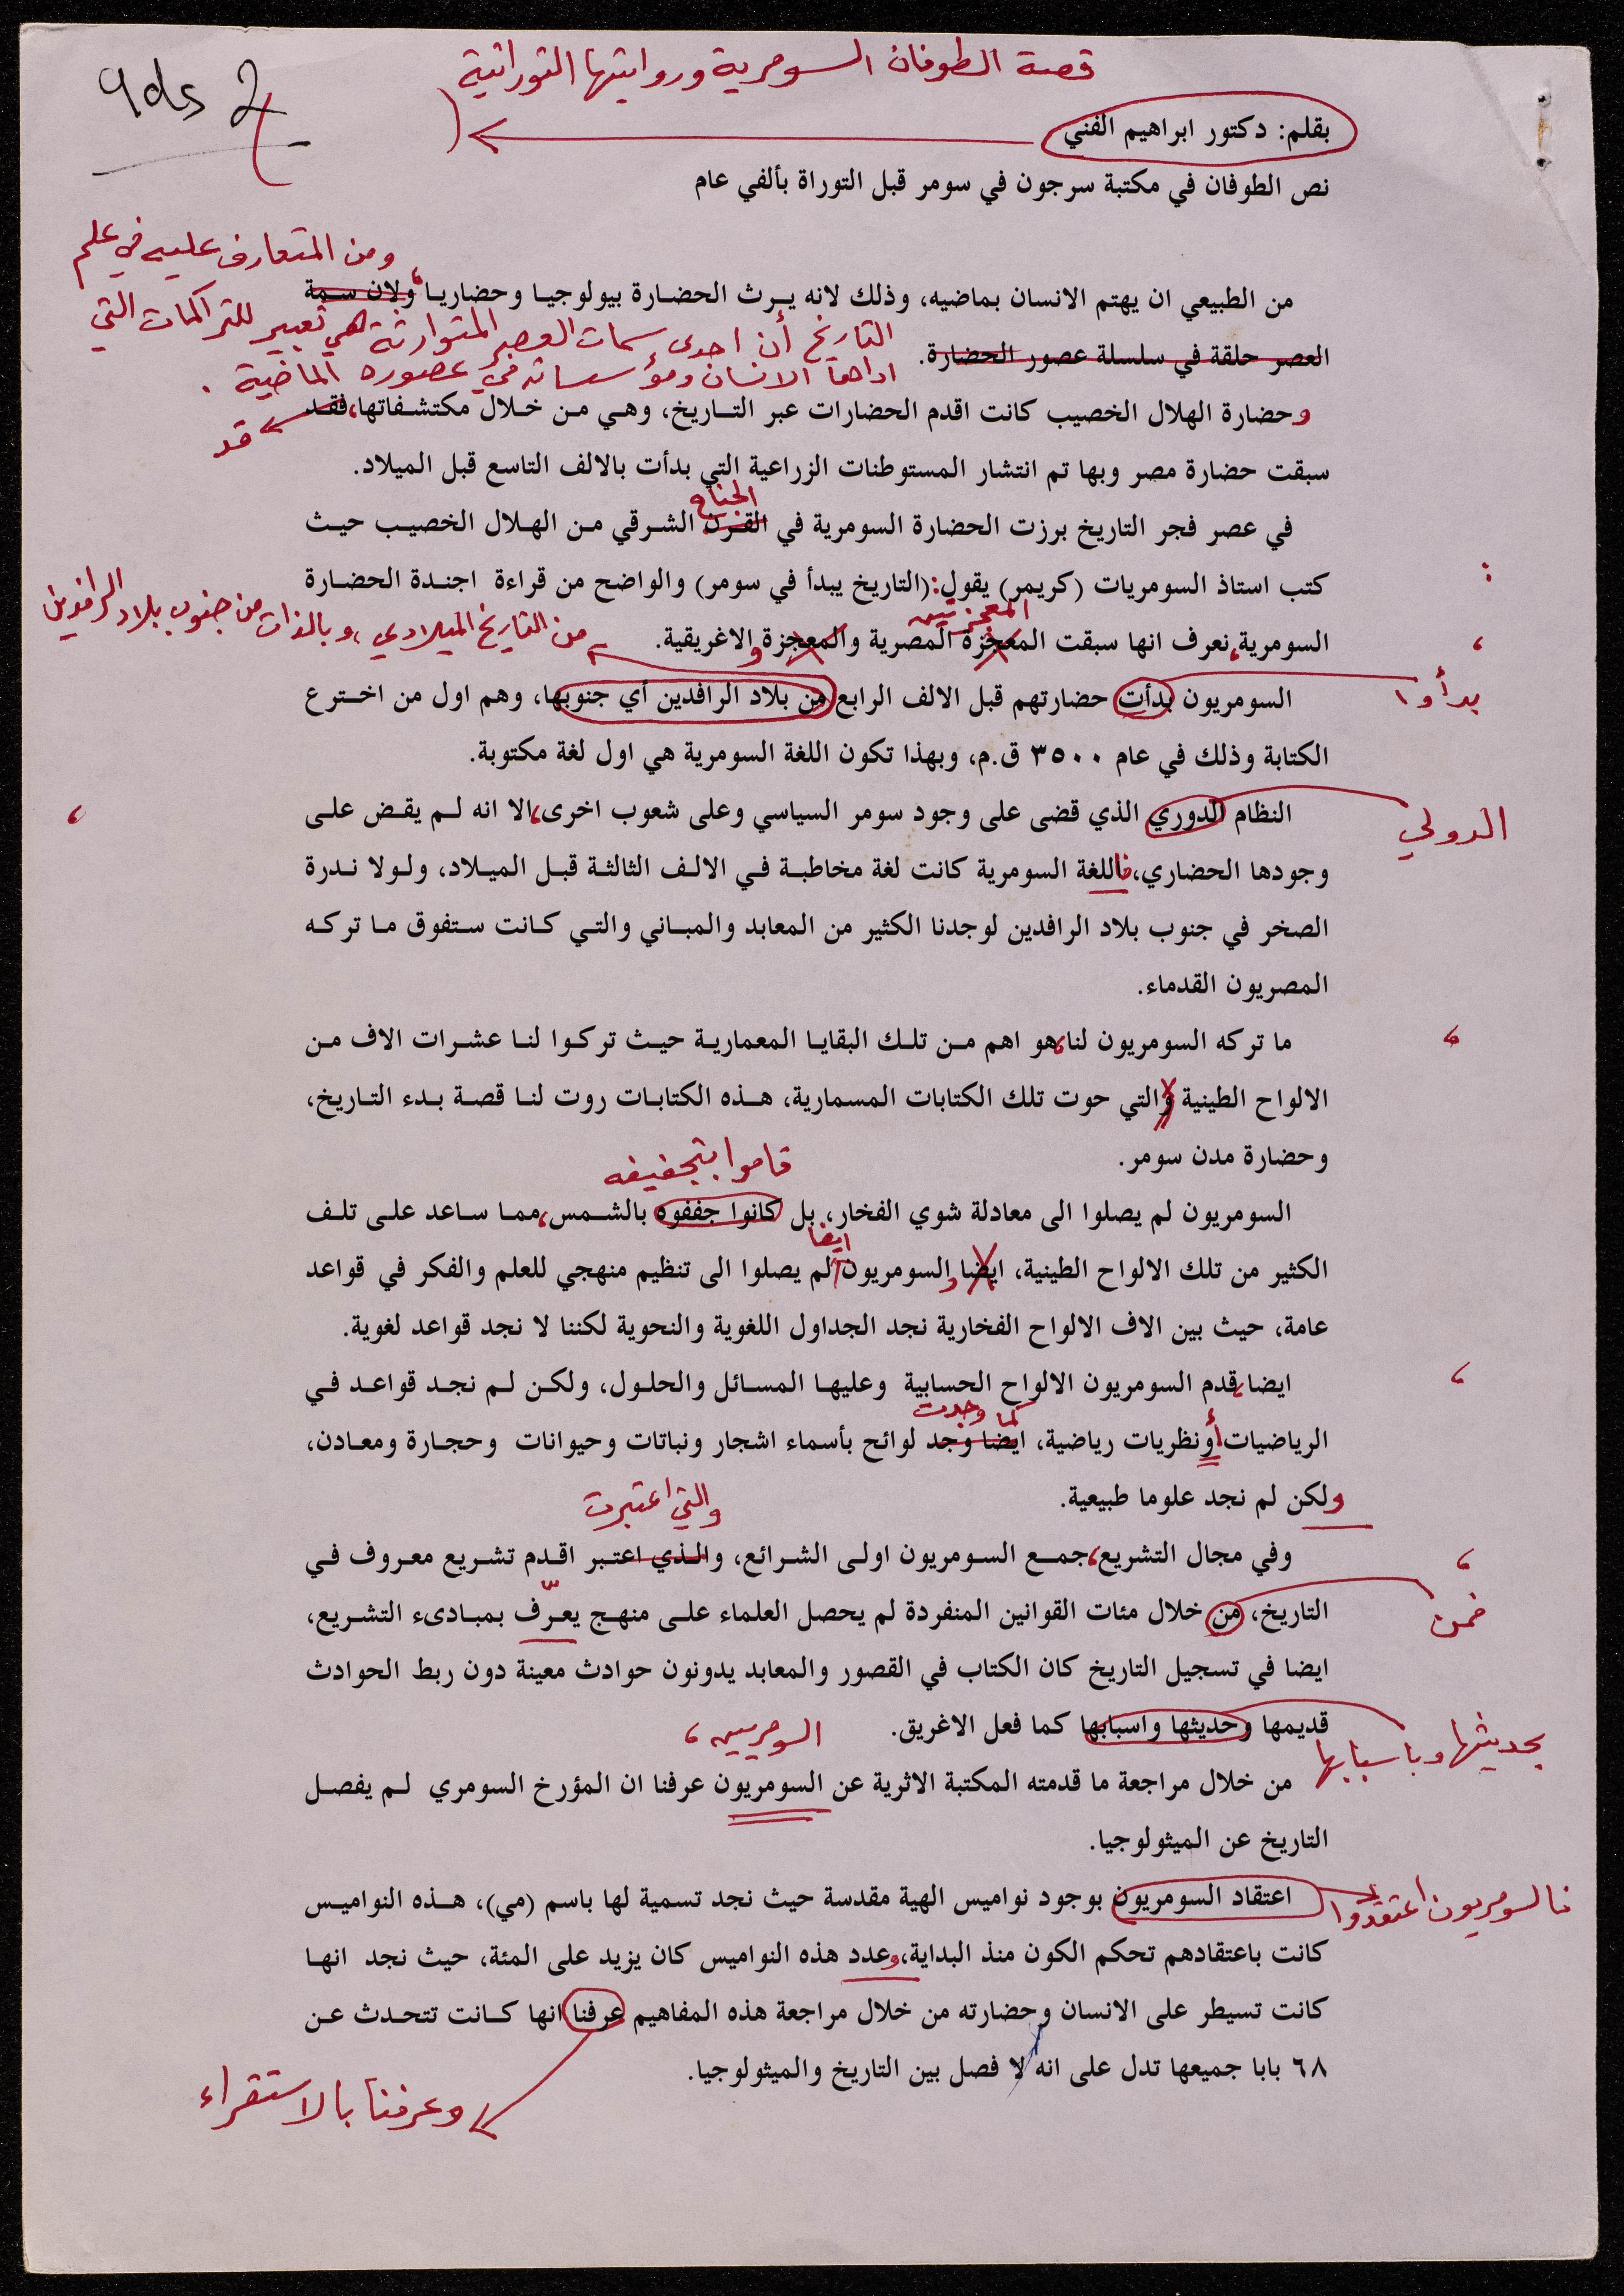 قصة الطوفان السومرية وروايتها التوراتية
بقلم: دكتور ابراهيم الفني
نص الطوفان في مكتبة سرجون في سومر قبل التوراة بألفي عام
ومن المتعارف عليه في علم
من الطبيعي ان يهتم الانسان بماضيه، وذلك لانه يرث الحضارة بيولوجيا وحضاريا، ولان سمة
التاريخ أن احدى سمات العصر المتوارثة هي تعبير للتراكمات التي
العصر حلقة في سلسلة عصور الحضارة.
الانسان ومؤسساته في عصوره الماضية.
وحضارة الهلال الخصيب كانت اقدم الحضارات عبر التاريخ، وهي من خلال مكتشفاتها، فقد
قد
سبقت حضارة مصر وبها تم انتشار المستوطنات الزراعية التي بدأت بالالف التاسع قبل الميلاد.
الجناح
في عصر فجر التاريخ برزت الحضارة السومرية في القرن الشرقي من الهلال الخصيب حيث
كتب استاذ السومريات (كريمر) يقول: (التاريخ يبدأ في سومر) والواضح من قراءة اجندة الحضارة :
المعجزتين
السومرية، نعرف انها سبقت المعجزة المصرية والمعجزة و الاغريقية. ،
من التاريخ الميلادي، وبالذات من جنوب بلاد الرافدين
السومريون بدأت حضارتهم قبل الالف الرابع من بلاد الرافدين أي جنوبها، وهم اول من اخترع
بدأوا
الكتابة وذلك في عام ٣٥٠٠ ق.م، وبهذا تكون اللغة السومرية هي اول لغة مكتوبة.
النظام الدوري الذي قضى على وجود سومر السياسي وعلى شعوب اخرى، الا انه لم يقض على ،
الدولي
وجودها الحضاري، فاللغة السومرية كانت لغة مخاطبة في الالف الثالثة قبل الميلاد، ولولا ندرة
الصخر في جنوب بلاد الرافدين لوجدنا الكثير من المعابد والمباني والتي كانت ستفوق ما تركه
المصريون القدماء.
ما تركه السومريون لنا، هو اهم من تلك البقايا المعمارية حيث تركوا لنا عشرات الاف من ،
الالواح الطينية والتي حوت تلك الكتابات المسمارية، هذه الكتابات روت لنا قصة بدء التاريخ،
وحضارة مدن سومر.
قاموا بتجفيفه
السومريون لم يصلوا الى معادلة شوي الفخار، بل كانوا جففوه بالشمس، مما ساعد على تلف
ايضا
الكثير من تلك الالواح الطينية، ايضا و السومريون لم يصلوا الى تنظيم منهجي للعلم والفكر في قواعد
عامة، حيث بين الاف الالواح الفخارية نجد الجداول اللغوية والنحوية لكننا لا نجد قواعد لغوية.
ايضا، قدم السومريون الالواح الحسابية وعليها المسائل والحلول، ولكن لم نجد قواعد في ،
كما وجدت
الرياضيات أو نظريات رياضية، ايضا وجد لوائح بأسماء اشجار ونباتات وحيوانات وحجارة ومعادن،
ولكن لم نجد علوما طبيعية.
والتي اعتبرت
وفي مجال التشريع، جمع السومريون اولى الشرائع، والذي اعتبر اقدم تشريع معروف في ،
التاريخ، من خلال مئات القوانين المنفردة لم يحصل العلماء على منهج يعرّف بمبادىء التشريع،
ضمن
ايضا في تسجيل التاريخ كان الكتاب في القصور والمعابد يدونون حوادث معينة دون ربط الحوادث
قديمها وحديثها واسبابها كما فعل الاغريق.
السومريين،
بحديثها وباسبابها
من خلال مراجعة ما قدمته المكتبة الاثرية عن السومريون عرفنا ان المؤرخ السومري لم يفصل
التاريخ عن الميثولوجيا.
فالسومريون اعتقدوا
اعتقاد السومريون بوجود نواميس الهية مقدسة حيث نجد تسمية لها باسم (مي)، هذه النواميس
كانت باعتقادهم تحكم الكون منذ البداية، وعدد هذه النواميس كان يزيد على المئة، حيث نجد انها
كانت تسيطر على الانسان وحضارته من خلال مراجعة هذه المفاهيم عرفنا انها كانت تتحدث عن
٦٨ بابا جميعها تدل على انه لا فصل بين التاريخ والميثولوجيا.
وعرفنا بالاستقراء